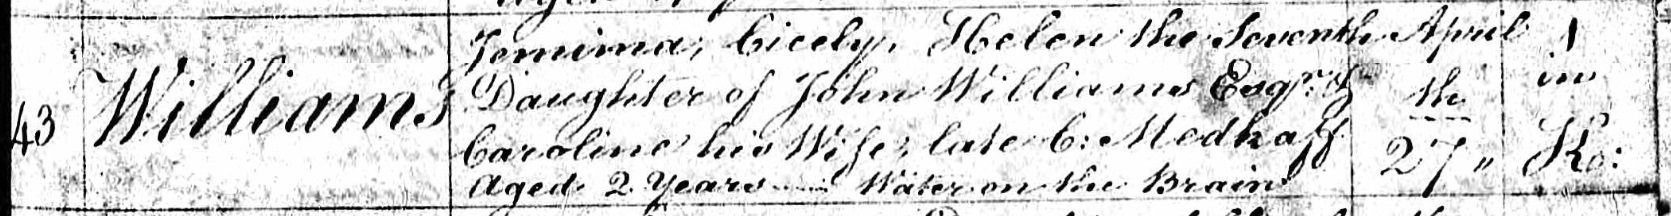 Jemima, Cicely, Helen the Seventh April 1
Daughter of John Williams Esqr. & th in
43 Williams
Caroline his Wife, late C: Medhaff 27" Ko:
Aged 2 Years — Water on the Brain